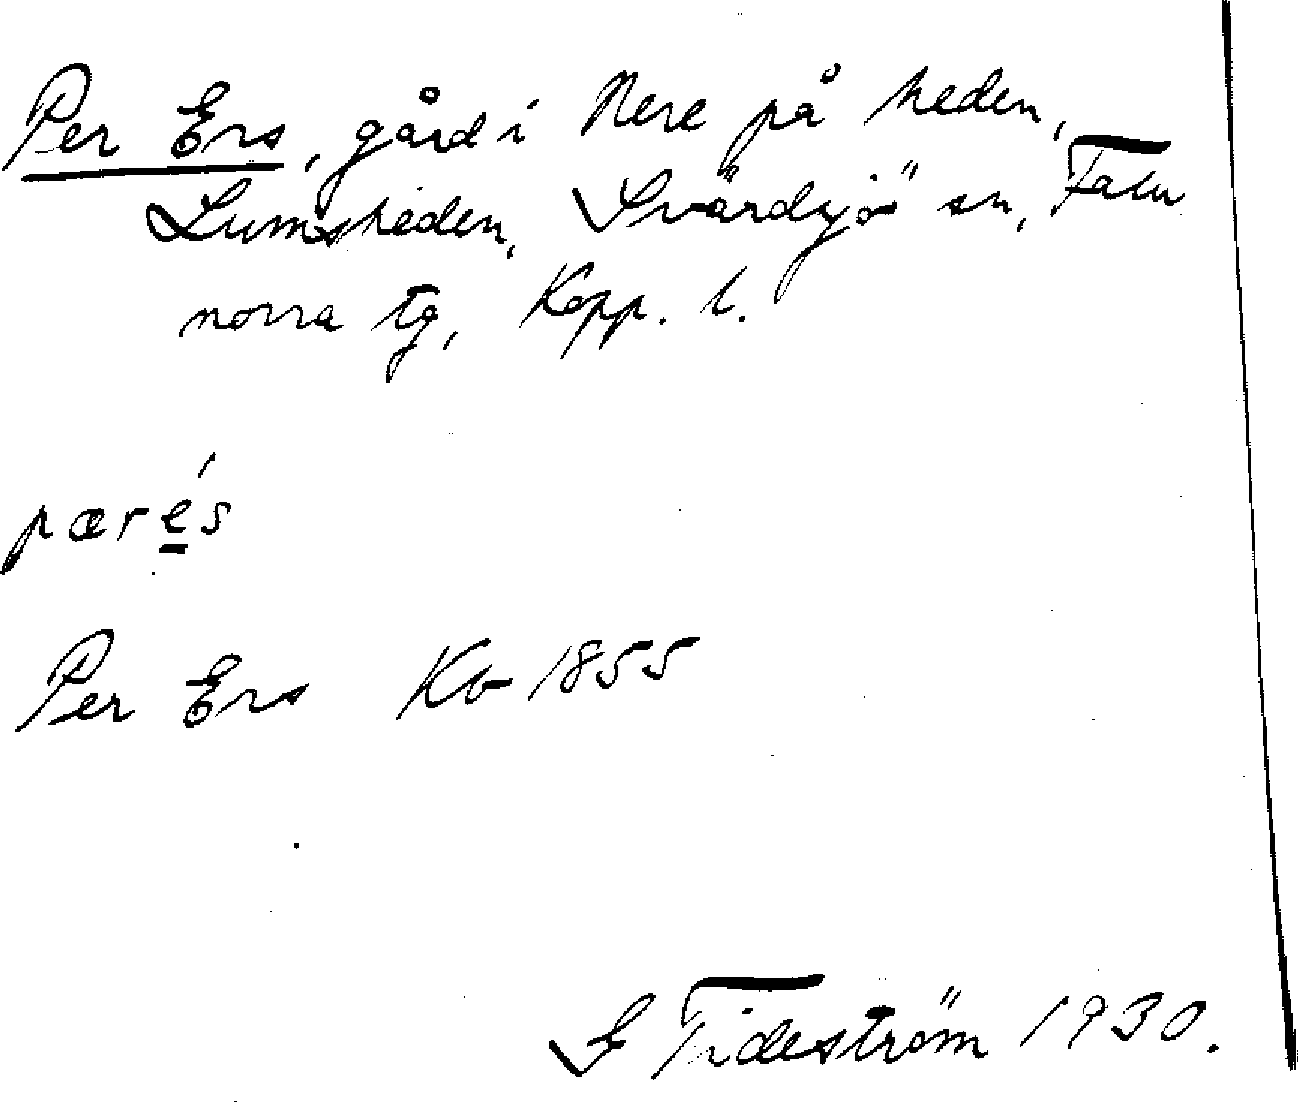 Per Ers, gård i Nere på heden,
Lumsheden, Svärdsjö sn, Falu
norra tg, Kopp. l.
pæré̲s
Per Ers Kb 1855
G Tideström 1930.